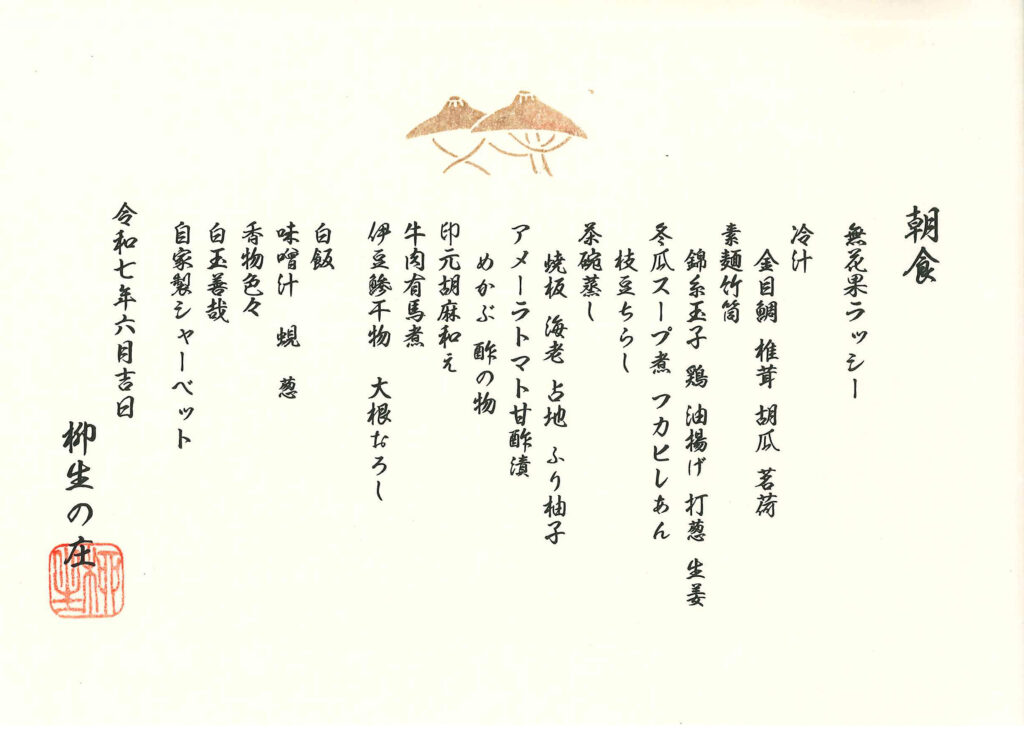 朝食
無花果ラッシー
冷汁
金目鯛 椎茸 胡瓜 茗荷
素麺竹筒
錦糸玉子 鶏 油揚げ 打葱 生姜
冬瓜スープ煮 フカヒレあん
枝豆ちらし
茶碗蒸し
焼板 海老 占地 ふり柚子
アメーラトマト甘酢漬
めかぶ 酢の物
印元胡麻和え
牛肉有馬煮
伊豆鯵干物 大根おろし
白飯
味噌汁 蜆 葱
香物色々
白玉善哉
自家製シャーベット
令和七年六月吉日
柳生の庄